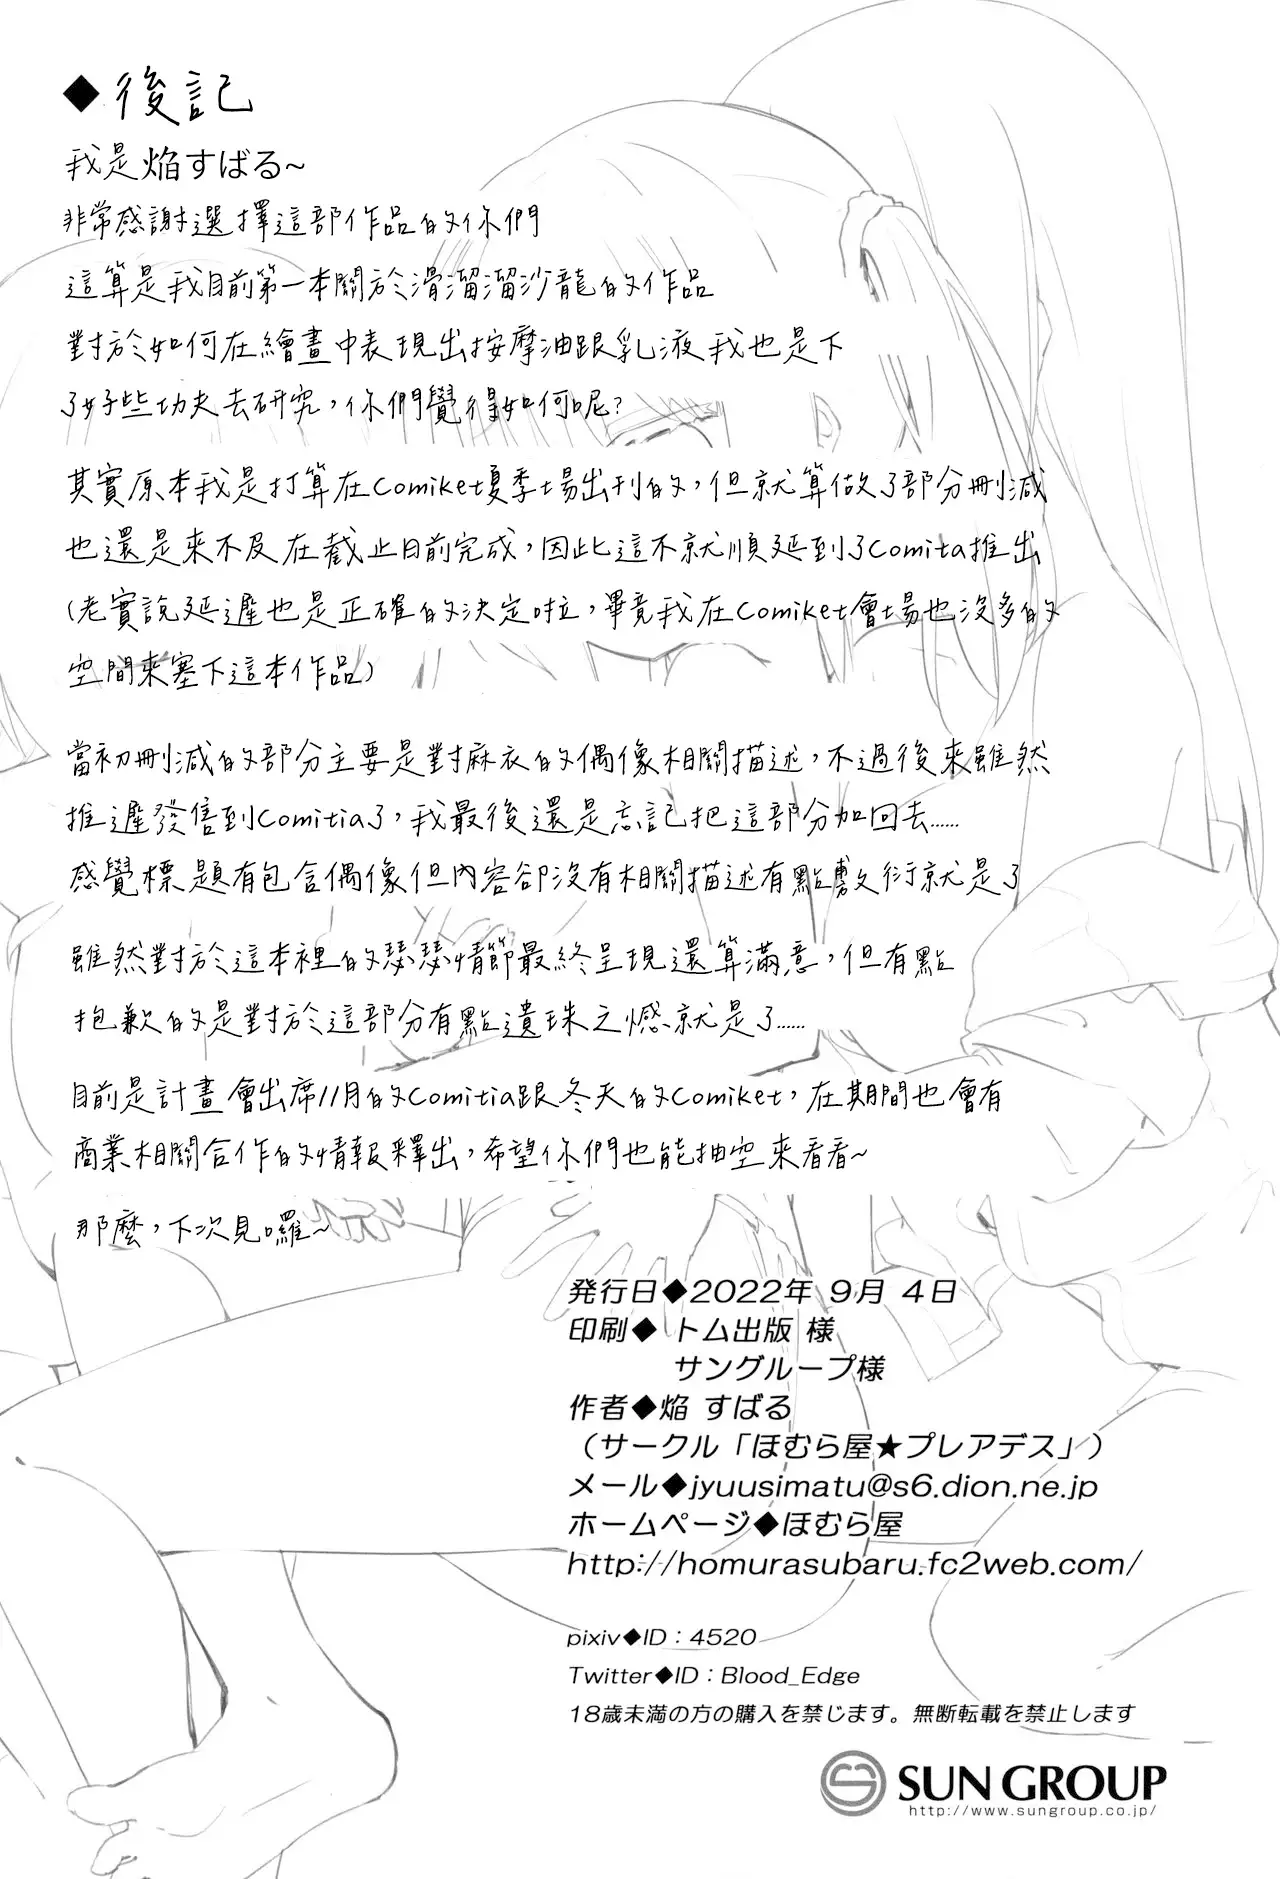 ◆後記
我是焔すばる~
非常感謝選擇這部作品的你們
這算是我目前第一本關於滑溜溜沙龍的作品
對於如何在繪畫中表現出按摩油跟乳液我也是下
了好些功夫去研究，你們覺得如何呢?
其實原本我是打算在Comiket夏季場出刊的，但就算做了部分刪減
也還是來不及在截止日前完成，因此這不就順延到了Comita推出
(老實說延遲也是正確的決定啦，畢竟我在Comiket會場也沒多的
空間來塞下這本作品)
當初刪減的部分主要是對麻衣的偶像相關描述，不過後來雖然
推遲發售到Comitia了，我最後還是忘記把這部分加回去......
感覺標題有包含偶像但內容卻沒有相關描述有點敷衍就是了
雖然對於這本裡的瑟瑟情節最終呈現還算滿意，但有點
抱歉的是對於這部分有點遺珠之憾就是了......
目前是計畫會出席11月的Comitia跟冬天的Comiket，在期間也會有
商業相關合作的情報釋出，希望你們也能抽空來看看~
那麼，下次見囉~
発行日◆2022年 9月 4日
印刷◆ トム出版 様
サングループ様
作者◆焔 すばる
（サークル「ほむら屋★プレアデス」）
メール◆jyuusimatu@s6.dion.ne.jp
ホームページ◆ほむら屋
http://homurasubaru.fc2web.com/
pixiv◆ID：4520
Twitter◆ID：Blood_Edge
18歳未満の方の購入を禁じます。無断転載を禁止します
SUN GROUP
http://www.sungroup.co.jp/